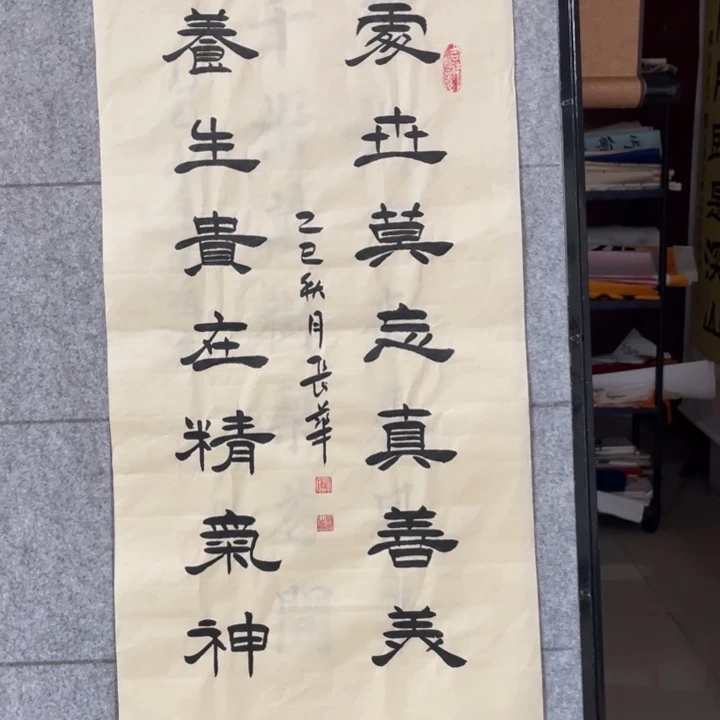 處世莫忘真善美
養生貴在精氣神
乙巳秋月長華